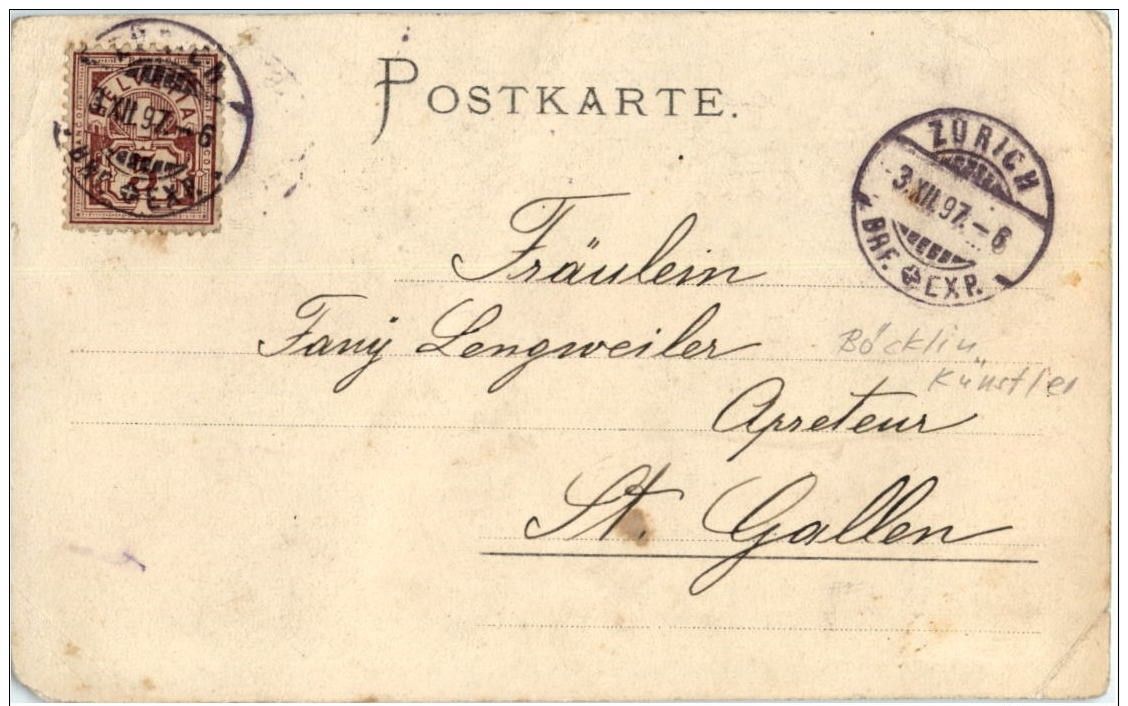 POSTKARTE.
ZÜRICH
3.XII.97.-6
BHF. EXP.
ZÜRICH
3.XII.97.-6
BHF. EXP.
Fräulein
Fany Lengweiler
Böcklin
Künstler
Apreteur
St. Gallen